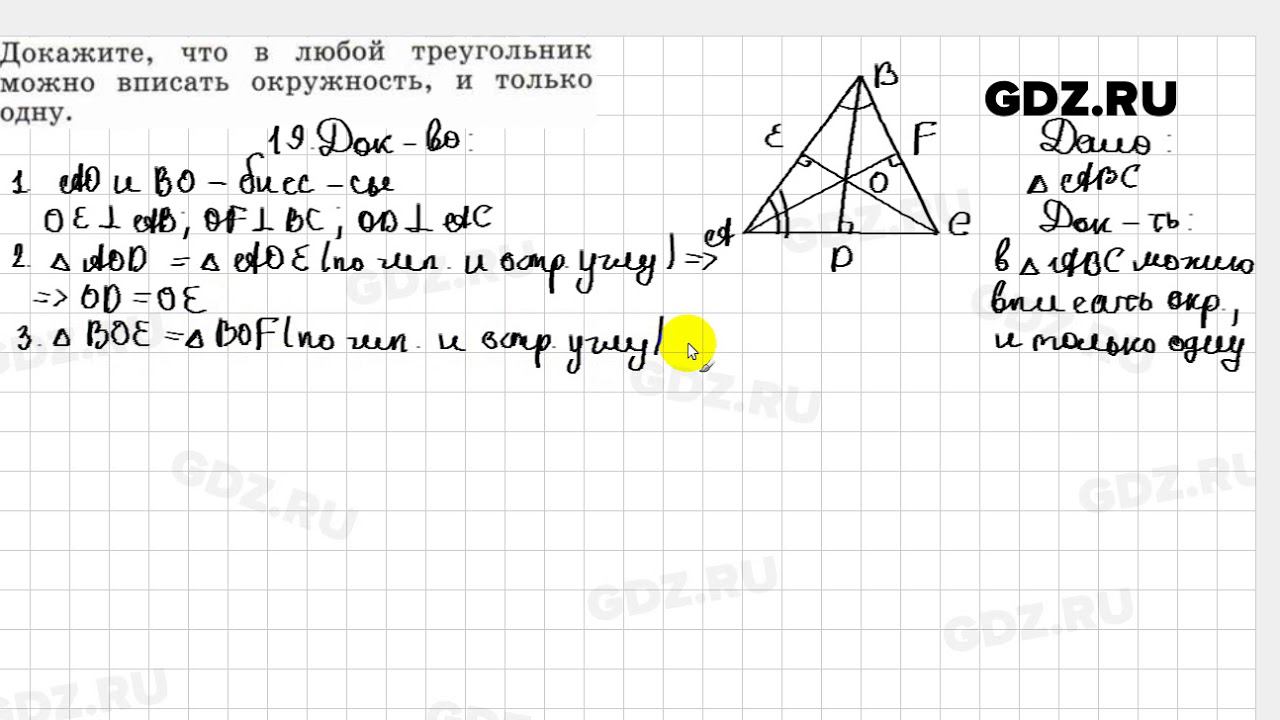 Докажите, что в любой треугольник
можно вписать окружность, и только
одну.
GDZ.RU
19. Док-во:
Дано:
1 AO и BO – бисс-сы
△ ABC
OE ⊥ AB; OF ⊥ BC; OD ⊥ AC
Док-ть:
2. △ AOD = △ AOE (по гип. и остр. углу) =>
в △ ABC можно
=> OD = OE
вписать окр.,
3. △ BOE = △ BOF (по гип. и остр. углу)
и только одну
B
E
F
O
A
C
D
GDZ.RU
GDZ.RU
GDZ.RU
GDZ.RU
GDZ.RU
GDZ.RU
GDZ.RU
GDZ.RU
GDZ.RU
GDZ.RU
GDZ.RU